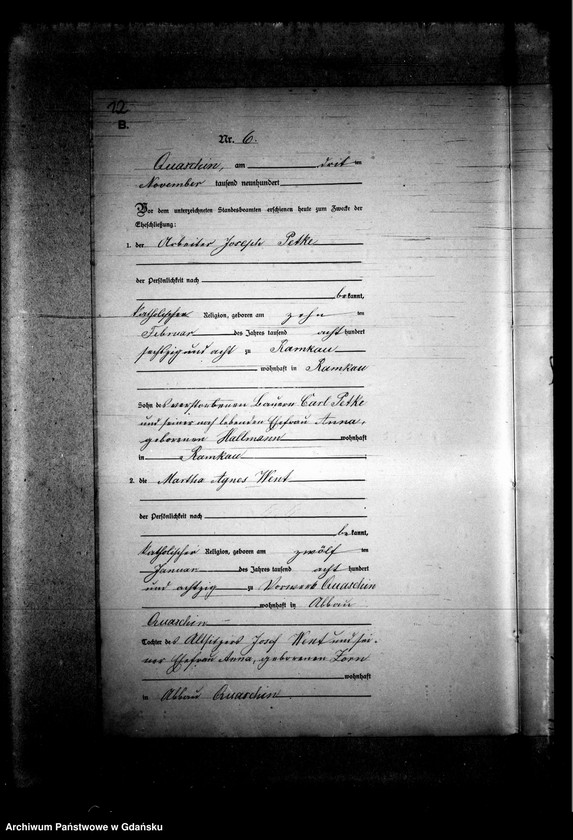 12
B.
Nr. 6.
Quaschin, am dritten
November tausend neunhundert
Vor dem unterzeichneten Standesbeamten erschienen heute zum Zwecke der
Eheschließung:
1. der Arbeiter Joseph Petke
der Persönlichkeit nach
bekannt,
katholischer Religion, geboren am zehnten
Februar des Jahres tausend achthundert
sechzig und acht zu Ramkau
wohnhaft in Ramkau
Sohn des verstorbenen Bauern Carl Petke
und seiner noch lebenden Ehefrau Anna,
geborenen Hallmann wohnhaft
in Ramkau
2. die Martha Agnes Went
der Persönlichkeit nach
bekannt,
katholischer Religion, geboren am zwölften
Januar des Jahres tausend achthundert
und achtzig zu Vorwerk Quaschin
wohnhaft in Abbau
Quaschin
Tochter des Altsitzers Josef Went und sei-
ner Ehefrau Anna, geborenen Zorn
wohnhaft
in Abbau Quaschin
Archiwum Państwowe w Gdańsku